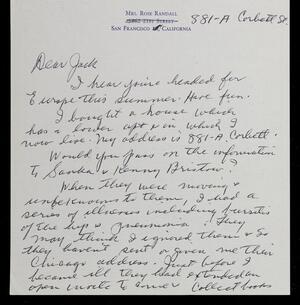 MRS. ROSE RANDALL
881-A Corbett St.
2862 21ST STREET
SAN FRANCISCO CALIFORNIA
Dear Jack
I hear you're headed for
Europe this summer. Have fun.
I bought a house which
has a lower apt in which I
now live. My address is 881-A Corbett.
Would you pass on the information
to Sandra & Kenny Bristow?
When they were moving &
unbeknowns to them, I had a
series of illnesses including bursitis
of the hip & pneumonia. They
may think I ignored them & so
they haven't sent or given me their
Chicago address. Just before I
became ill they had extended an
open invite to dinner
Collect books